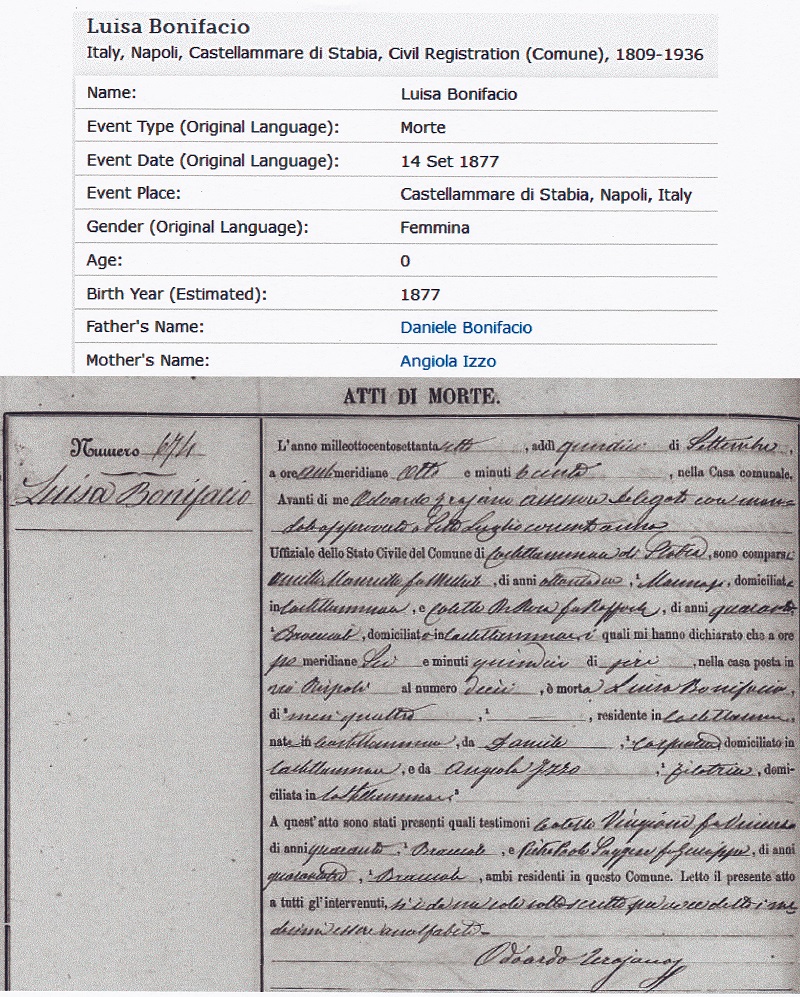 Luisa Bonifacio
Italy, Napoli, Castellammare di Stabia, Civil Registration (Comune), 1809-1936
Name: Luisa Bonifacio
Event Type (Original Language): Morte
Event Date (Original Language): 14 Set 1877
Event Place: Castellammare di Stabia, Napoli, Italy
Gender (Original Language): Femmina
Age: 0
Birth Year (Estimated): 1877
Father's Name: Daniele Bonifacio
Mother's Name: Angiola Izzo
ATTI DI MORTE.
Numero 674
Luisa Bonifacio
L'anno milleottocentosettantasette, addì quindici di Settembre,
a ore antimeridiane Otto e minuti, nella Casa comunale.
Avanti di me Odoardo Trojano assessore delegato con
approvato Luglio corrente anno
Uffiziale dello Stato Civile del Comune di Castellammare di Stabia, sono comparsi
, di anni, domiciliata
in Castellammare, e De Rosa fu Raffaele, di anni quaranta,
Bracciale, domiciliato in Castellammare i quali mi hanno dichiarato che a ore
meridiane Sei e minuti quindici di jeri, nella casa posta in
via Rispoli al numero dieci, è morta Luisa Bonifacio,
di mesi quattro, residente in Castellammare,
nata in Castellammare, da Daniele, domiciliato in
Castellammare, e da Angiola Izzo, filatrice, domi-
ciliata in Castellammare
A quest'atto sono stati presenti quali testimoni Catello Vingiani fu Vincenzo
di anni quaranta, Bracciale, e Pietro Paolo fu Giuseppe, di anni
, Bracciale, ambi residenti in questo Comune. Letto il presente atto
a tutti gl'intervenuti, si è da me solo sottoscritto per aver detto i me-
desimi essere analfabeti
Odoardo Trojano